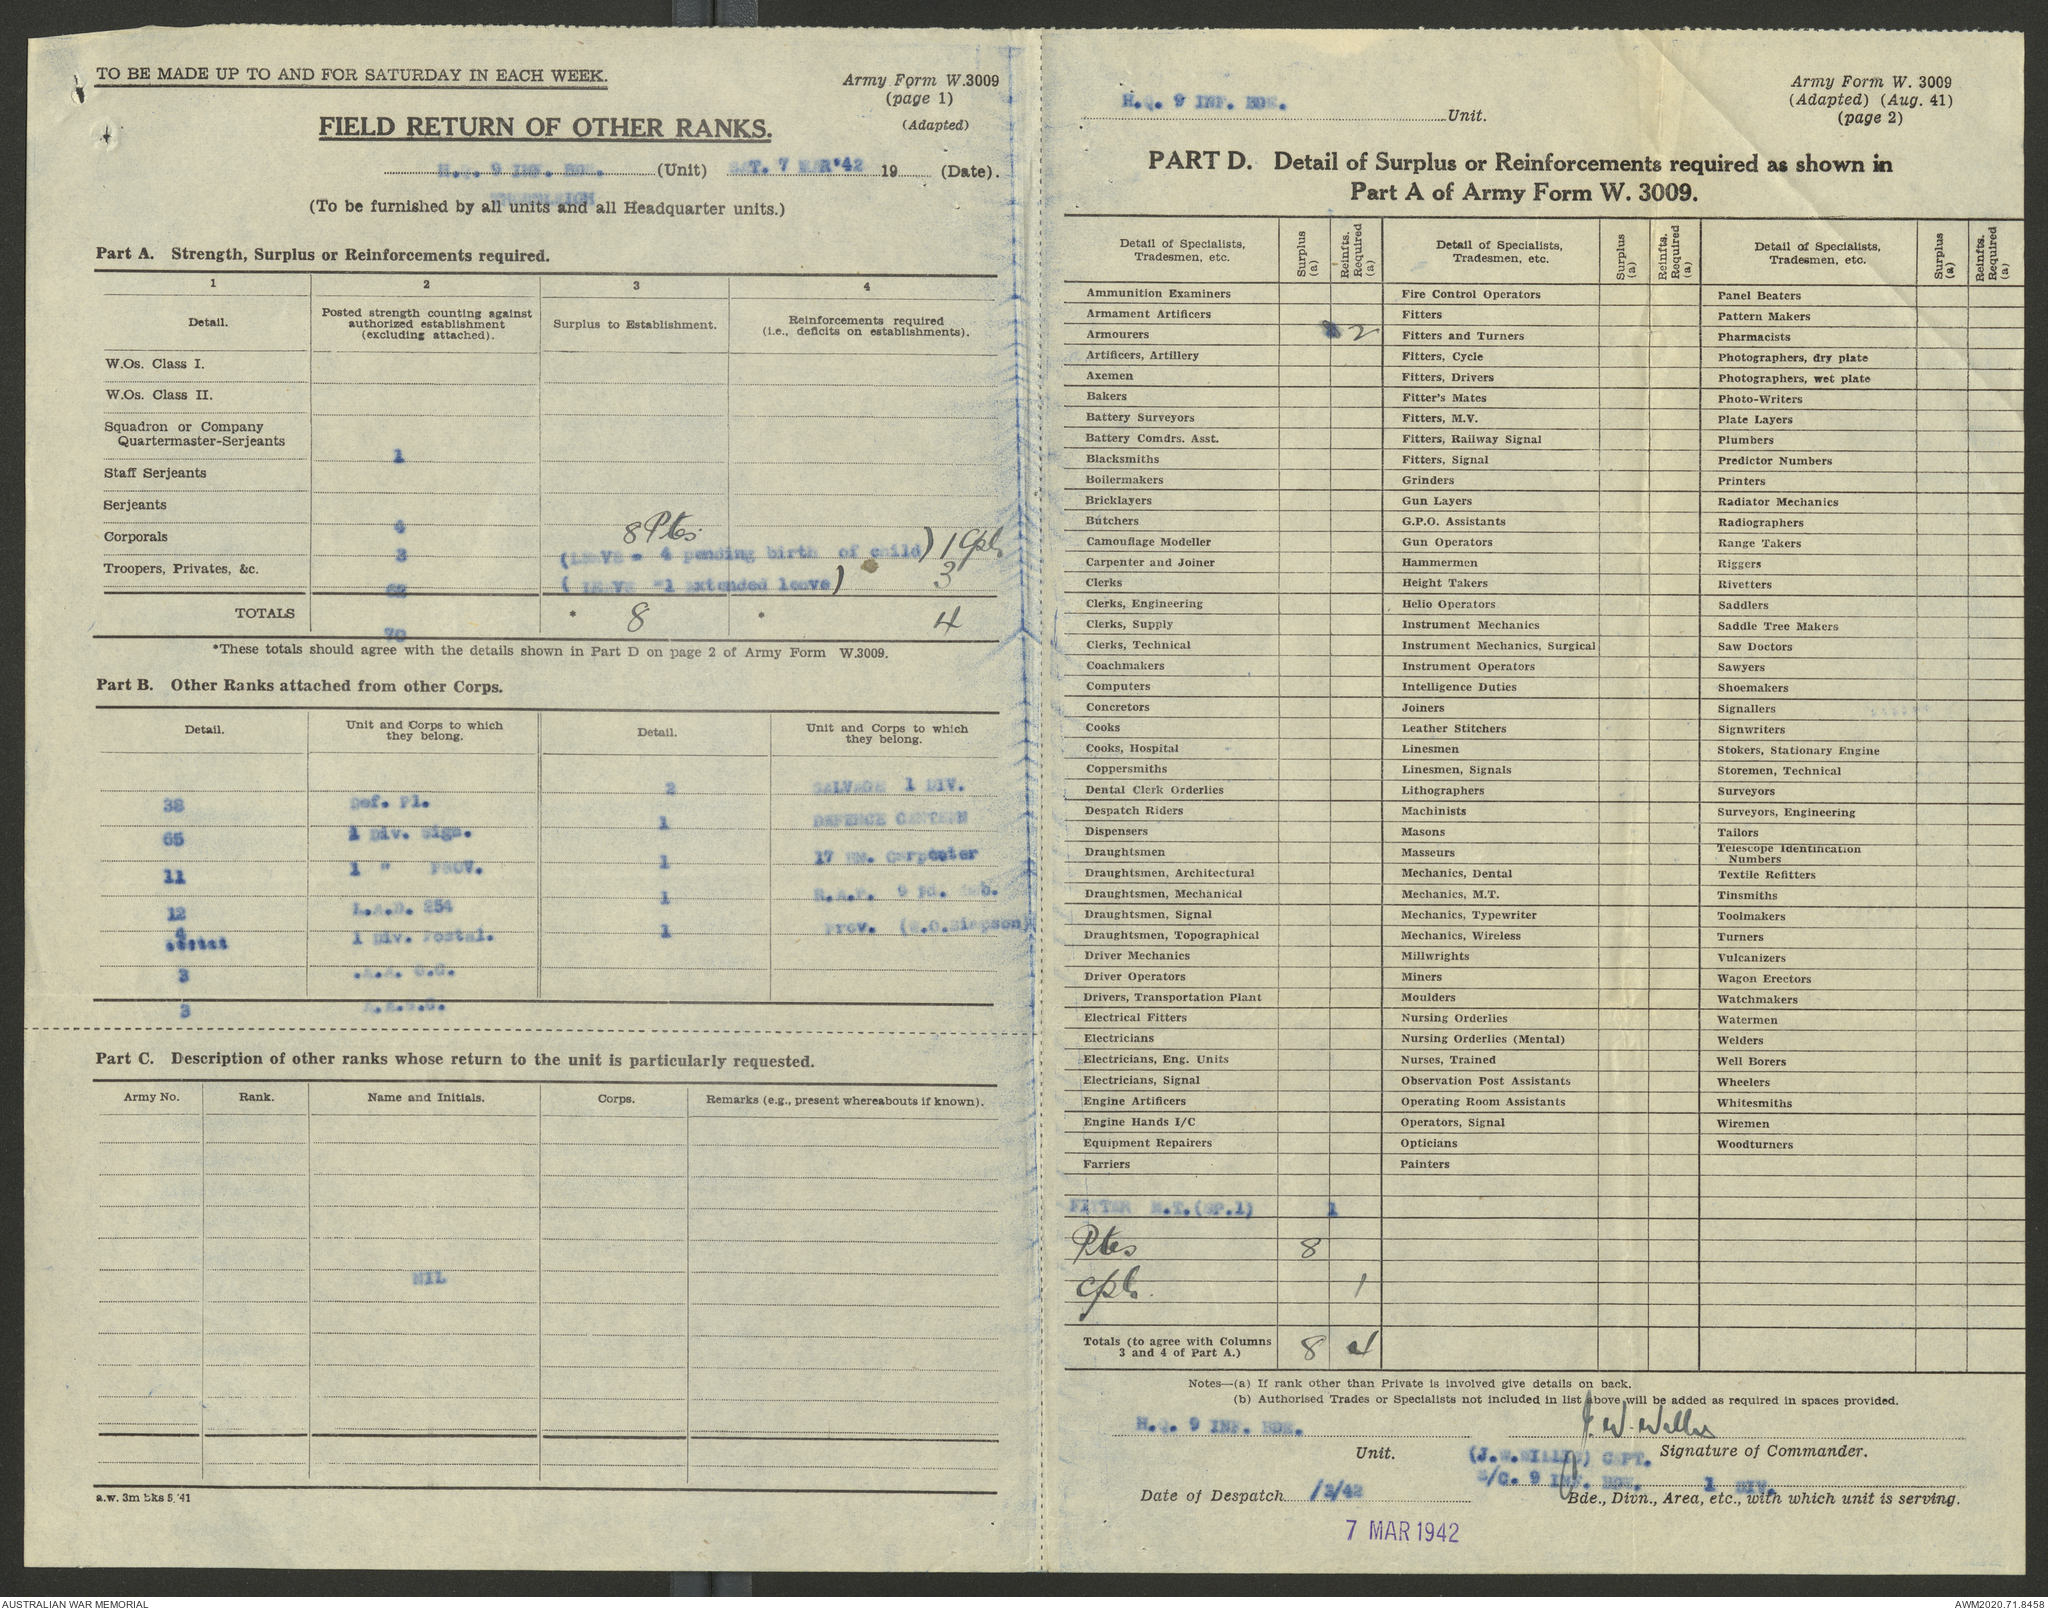 TO BE MADE UP TO AND FOR SATURDAY IN EACH WEEK.
Army Form W.3009
(page 1)
(Adapted)
FIELD RETURN OF OTHER RANKS.
H.Q. 9 INF. BDE. (Unit) SAT. 7 MAR '42 19 (Date).
(To be furnished by all units and all Headquarter units.)
Part A. Strength, Surplus or Reinforcements required.
1 2 3 4
Detail. Posted strength counting against authorized establishment (excluding attached). Surplus to Establishment. Reinforcements required (i.e., deficits on establishments).
W.Os. Class I.
W.Os. Class II.
Squadron or Company
Quartermaster-Serjeants
1
Staff Serjeants
Serjeants
4 8 Ptes
Corporals
3 (LEAVE - 4 pending birth of child) 1 Cpl
Troopers, Privates, &c.
62 (LEAVE - 1 extended leave) 3
TOTALS * 8 * 4
70
*These totals should agree with the details shown in Part D on page 2 of Army Form W.3009.
Part B. Other Ranks attached from other Corps.
Detail. Unit and Corps to which they belong. Detail. Unit and Corps to which they belong.
38 Def. Pl. 2 SALVAGE 1 DIV.
65 1 Div. Sigs. 1 DEFENCE CANTEEN
11 1 " PROV. 1 17 BN. Carpenter
12 L.A.D. 254 1 R.A.P. 9 Fd. Amb.
4 1 Div. Postal. 1 Prov. (W.O.Simpson)
3 A.A. O.C.
3 A.A.S.C.
Part C. Description of other ranks whose return to the unit is particularly requested.
Army No. Rank. Name and Initials. Corps. Remarks (e.g., present whereabouts if known).
NIL
a.w. 3m bks 8/41
H.Q. 9 INF. BDE. Unit.
Army Form W. 3009
(Adapted) (Aug. 41)
(page 2)
PART D. Detail of Surplus or Reinforcements required as shown in
Part A of Army Form W. 3009.
Detail of Specialists, Tradesmen, etc. Surplus (a) Reinfts. Required (a) Detail of Specialists, Tradesmen, etc. Surplus (a) Reinfts. Required (a) Detail of Specialists, Tradesmen, etc. Surplus (a) Reinfts. Required (a)
Ammunition Examiners Fire Control Operators Panel Beaters
Armament Artificers Fitters Pattern Makers
Armourers 2 Fitters and Turners Pharmacists
Artificers, Artillery Fitters, Cycle Photographers, dry plate
Axemen Fitters, Drivers Photographers, wet plate
Bakers Fitter's Mates Photo-Writers
Battery Surveyors Fitters, M.V. Plate Layers
Battery Comdrs. Asst. Fitters, Railway Signal Plumbers
Blacksmiths Fitters, Signal Predictor Numbers
Boilermakers Grinders Printers
Bricklayers Gun Layers Radiator Mechanics
Butchers G.P.O. Assistants Radiographers
Camouflage Modeller Gun Operators Range Takers
Carpenter and Joiner Hammermen Riggers
Clerks Height Takers Rivetters
Clerks, Engineering Helio Operators Saddlers
Clerks, Supply Instrument Mechanics Saddle Tree Makers
Clerks, Technical Instrument Mechanics, Surgical Saw Doctors
Coachmakers Instrument Operators Sawyers
Computers Intelligence Duties Shoemakers
Concretors Joiners Signallers
Cooks Leather Stitchers Signwriters
Cooks, Hospital Linesmen Stokers, Stationary Engine
Coppersmiths Linesmen, Signals Storemen, Technical
Dental Clerk Orderlies Lithographers Surveyors
Despatch Riders Machinists Surveyors, Engineering
Dispensers Masons Tailors
Draughtsmen Masseurs Telescope Identification Numbers
Draughtsmen, Architectural Mechanics, Dental Textile Refitters
Draughtsmen, Mechanical Mechanics, M.T. Tinsmiths
Draughtsmen, Signal Mechanics, Typewriter Toolmakers
Draughtsmen, Topographical Mechanics, Wireless Turners
Driver Mechanics Millwrights Vulcanizers
Driver Operators Miners Wagon Erectors
Drivers, Transportation Plant Moulders Watchmakers
Electrical Fitters Nursing Orderlies Watermen
Electricians Nursing Orderlies (Mental) Welders
Electricians, Eng. Units Nurses, Trained Well Borers
Electricians, Signal Observation Post Assistants Wheelers
Engine Artificers Operating Room Assistants Whitesmiths
Engine Hands I/C Operators, Signal Wiremen
Equipment Repairers Opticians Woodturners
Farriers Painters
FITTER M.T.(GP.1) 1
Ptes 8
Cpls. 1
Totals (to agree with Columns 3 and 4 of Part A.) 8 4
Notes—(a) If rank other than Private is involved give details on back.
(b) Authorised Trades or Specialists not included in list above will be added as required in spaces provided.
H.Q. 9 INF. BDE. J. W. Willis
Unit. (J.W.WILLIS) CAPT. Signature of Commander.
S/C. 9 INF. BDE. 1 DIV.
Date of Despatch /3/42 Bde., Divn., Area, etc., with which unit is serving.
7 MAR 1942
AUSTRALIAN WAR MEMORIAL
AWM2020.71.8458